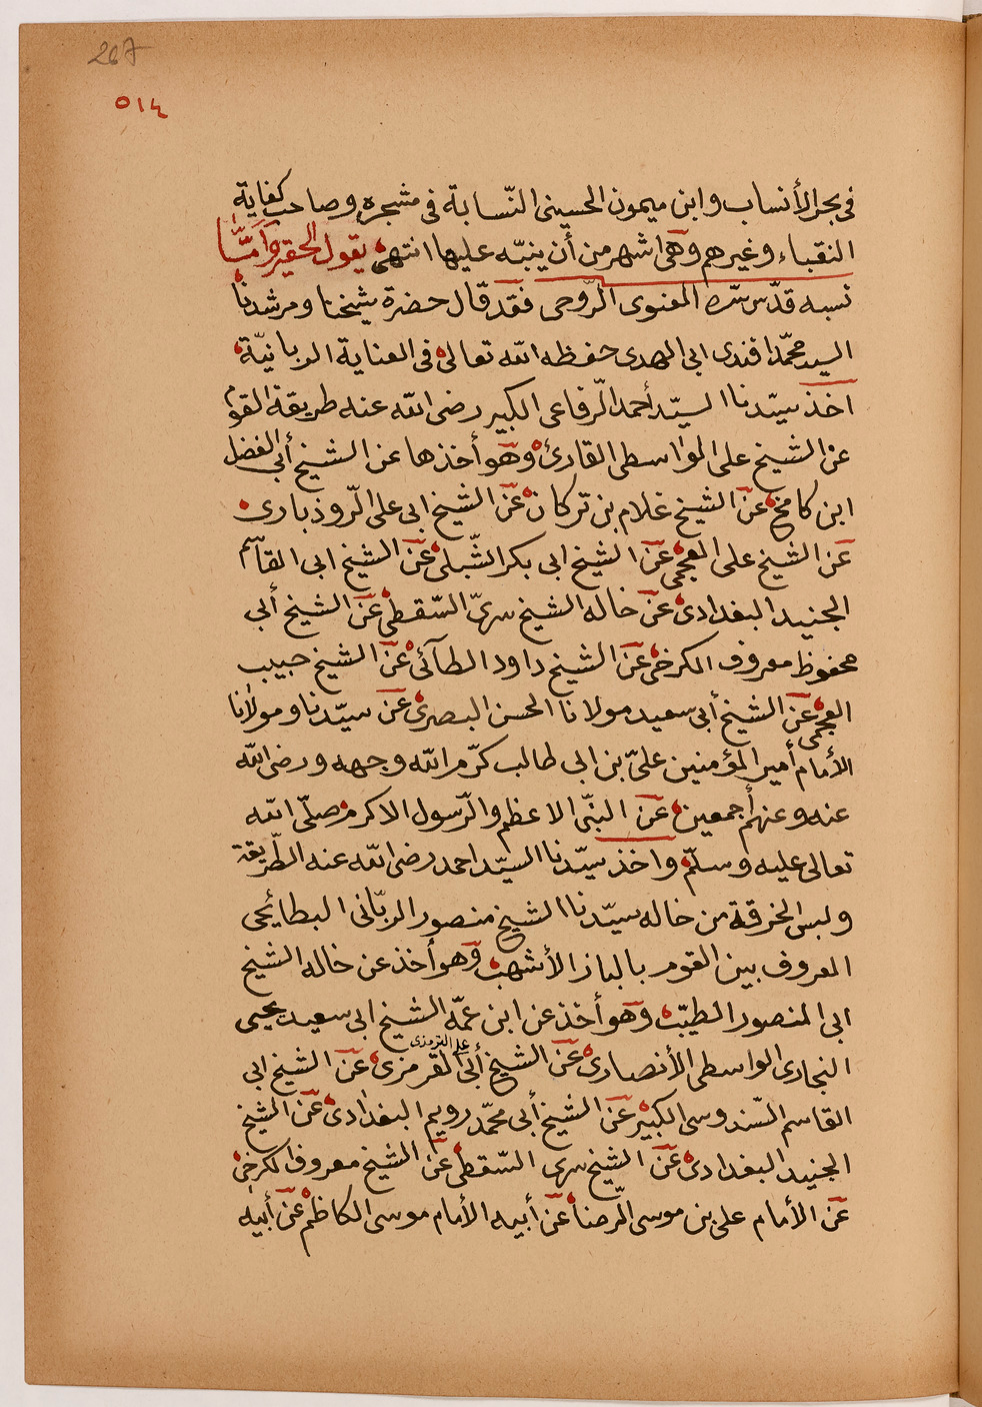 267
٥١٤
في بحر الأنساب وابن ميمون الحسيني النّسابة في مشجره وصاحب كفاية
النقباء وغيرهم وهي اشهر من أن ينبّه عليها انتهى يقول الحقير وامّا
نسبه قدّس سّره المعنوى الرّوحى فقد قال حضرة شيخنا ومرشدنا
السيد محمّد افندى ابى الهدى حفظه الله تعالى فى العناية الربانيّة
اخذ سيّدنا السيّد أحمد الرّفاعى الكبير رضى الله عنه طريقة القوم
عن الشيخ على الواسطى القارئ وهو أخذها عن الشيخ أبى الفضل
ابن كامخ عن الشيخ غلام بن تركان عن الشيخ ابى على الرّوذبارى
عن الشيخ على العجمى عن الشيخ ابى بكر الشّبلى عن الشيخ ابى القاسم
الجنيد البغدادى عن خاله الشيخ سرىّ السّقطى عن الشيخ أبى
محفوظ معروف الكرخى عن الشيخ داود الطآئى عن الشيخ حبيب
العجمى عن الشيخ أبى سعيد مولانا الحسن البصرى عن سيّدنا ومولانا
الأمام أمير المؤمنين علىّ بن ابى طالب كرّم الله وجهه ورضى الله
عنه وعنهم أجمعين عن النبّى الاعظم والرّسول الاكرم صلّى الله
تعالى عليه وسلّم واخذ سيّدنا السيّد احمد رضى الله عنه الطّريقة
ولبس الخرقة من خاله سيّدنا الشيخ منصور الربّانى البطائحى
المعروف بين القوم بالباز الأشهب وهو أخذ عن خاله الشيخ
ابى المنصور الطيّب وهو أخذ عن ابن عمّه الشيخ ابى سعيد يحيى
النجارى الواسطى الأنصارى عن الشيخ أبى القرمزى عن الشيخ ابى
على الترمذى
القاسم السّندوسى الكبير عن الشيخ أبى محمّد رويم البغدادى عن الشيخ
الجنيد البغدادى عن الشيخ سرى السّقطى عن الشيخ معروف الكرخى
عن الأمام على بن موسى الرّضا عن أبيه الأمام موسى الكاظم عن أبيه